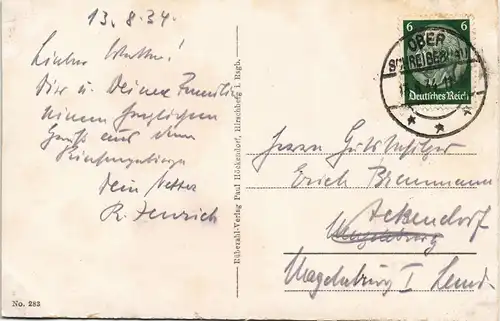 13.8.34.
Lieber Walter!
Dir u. Deiner Familie
einen herzlichen
Gruß aus dem
Riesengebirge
Dein Vetter
R. Henrich
Rübezahl-Verlag Paul Höckendorf, Hirschberg i. Rsgb.
No. 283
6 6
Deutsches Reich
OBER
SCHREIBERHAU
Herrn Gutsbesitzer
Erich Brennmann
Ackendorf
Magdeburg
Magdeburg I Land.